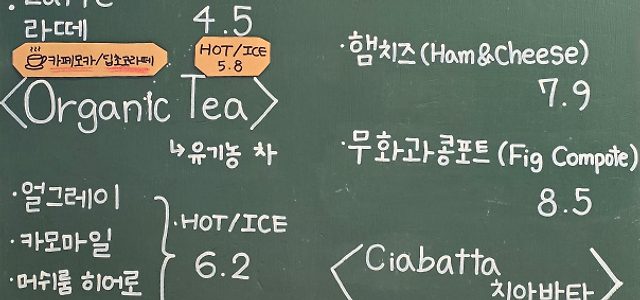 4.5
라떼
카페모카/딥초코라떼
HOT/ICE
5.8
<Organic Tea>
↳유기농 차
·얼그레이
·카모마일
·머쉬룸 히어로
·HOT/ICE
6.2
·햄치즈(Ham&Cheese)
7.9
·무화과콩포트(Fig Compote)
8.5
<Ciabatta
치아바타>